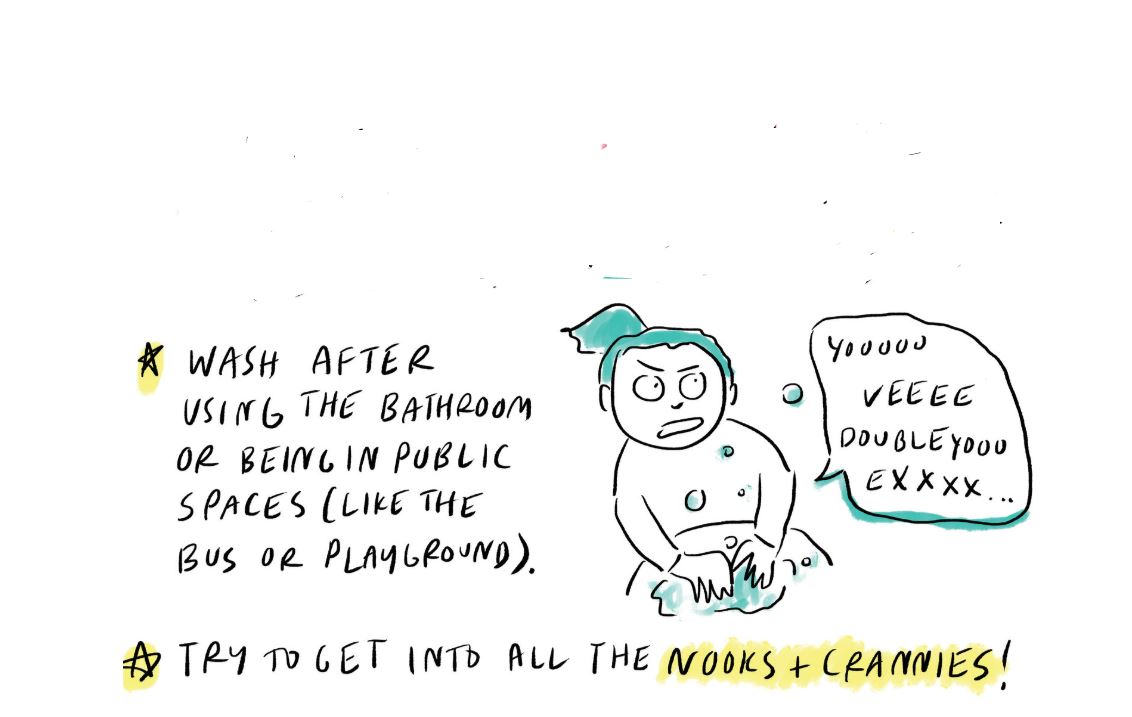 WASH AFTER
USING THE BATHROOM
OR BEING IN PUBLIC
SPACES (LIKE THE
BUS OR PLAYGROUND).
YOOOOO
VEEEE
DOUBLEYOOO
EXXXX...
TRY TO GET INTO ALL THE NOOKS + CRANNIES!